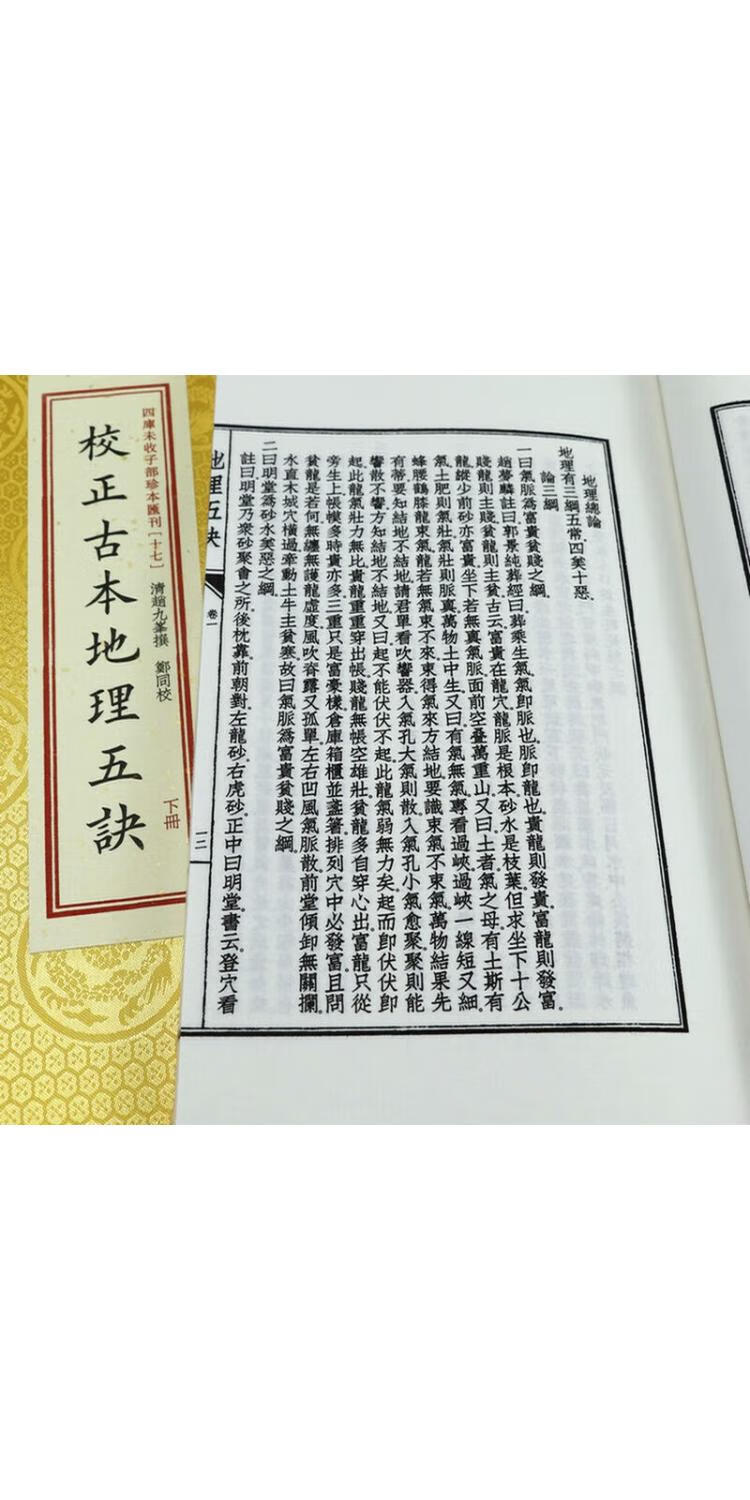 四庫未收子部珍本匯刊〔十七〕
清趙九峯撰　鄭同校
校正古本地理五訣
下冊
地理總論
地理有三綱五常四美十惡
論三綱
一曰氣脈爲富貴貧賤之綱
趙夢麟註曰郭景純葬經曰葬乘生氣氣卽脈也脈卽龍也貴龍則發貴富龍則發富
賤龍則主賤貧龍則主貧古云富貴在龍穴龍脈是根本砂水是枝葉但求坐下十公
龍縱少前砂亦富貴坐下若無真氣脈面前空叠萬重山又曰土者氣之母有土斯有
氣土肥則氣壯氣壯則脈真萬物土中生又曰有氣無氣專看過峽過峽一線短又細
蜂腰鶴膝龍束氣龍若無氣束不來束得氣來方結地要識束氣不束氣萬物結果先
有蒂要知結地不結地請君單看吹響器入氣孔大氣則散入氣孔小氣愈聚聚則能
響散不響方知結地不結地又曰起不能伏伏不起此龍氣弱無力矣起而卽伏伏卽
起此龍氣壯力無比貴龍重重穿出帳賤龍無帳空雄壯貧龍多自穿心出富龍只從
旁生上帳幙多時貴亦多三重只是富豪樣倉庫箱櫃並盞箸排列穴中必發富且問
貧龍是若何無纏無護龍虛度風吹脊露又孤單左右凹風氣脈散前堂傾卸無關攔
水直木城穴橫過牽動土牛主貧寒故曰氣脈爲富貴貧賤之綱
二曰明堂爲砂水美惡之綱
註曰明堂乃衆砂聚會之所後枕靠前朝對左龍砂右虎砂正中曰明堂書云登穴看
地理五訣
卷一
一二